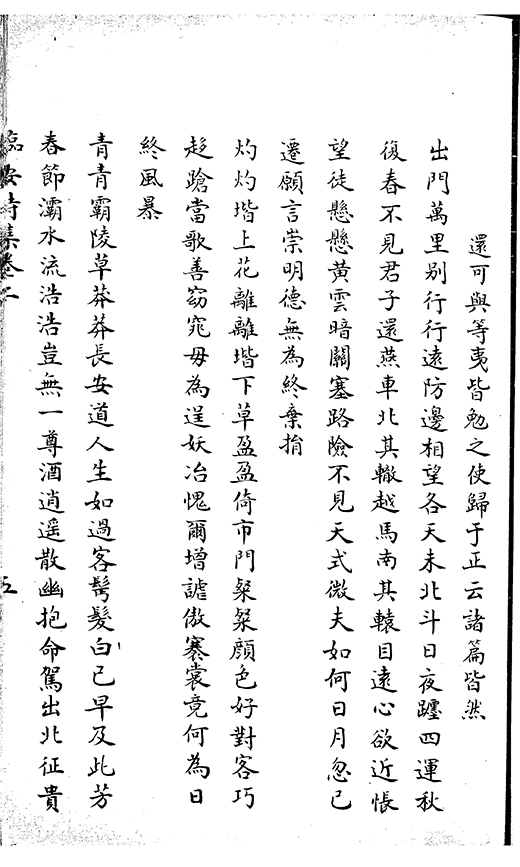 還可與等夷皆勉之使歸于正云諸篇皆然
出門萬里别行行遠防邊相望各天末北斗日夜躔四運秋
復春不見君子還燕車北其轍越馬南其轅目遠心欲近悵
望徒懸懸黄雲暗關塞路險不見天式微夫如何日月忽已
遷願言崇明德無為終棄捐
灼灼堦上花離離堦下草盈盈倚市門粲粲顔色好對客巧
趍蹌當歌善窈窕毋為逞妖冶愧爾增謔傲褰裳竟何為日
終風暴
青青霸陵草莽莽長安道人生如過客鬢髮白已早及此芳
春節灞水流浩浩豈無一尊酒逍遥散幽抱命駕出北征貴
臨安詩集卷二 五